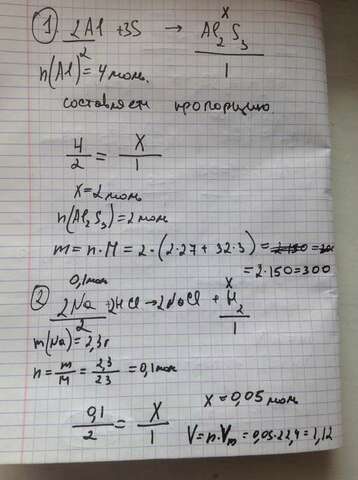 1 2Al + 3S → Al2S3
x
2
1
n(Al) = 4 мол.
составляем пропорцию
4/2 = X/1
X = 2 мол
n(Al2S3) = 2 мол
m = n · M = 2 · (2·27 + 32·3) =
= 2·150 = 300
0,1 мол
x
2 2Na + 2HCl → 2NaCl + H2
2
1
m(Na) = 2,3г
n = m/M = 2,3/23 = 0,1 мол
0,1/2 = X/1
X = 0,05 мол
V = n · Vm = 0,05·22,4 = 1,12